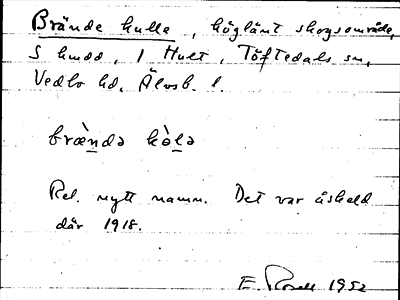 Brände kulle, höglänt skogsområde,
S hmdd, 1 Hult, Töftedals sn,
Vedbo hd, Älvsb. l.
bræ̀ndə kòlə
Rel. nytt namn. Det var åskeld
där 1918.
E. Rosell 1952